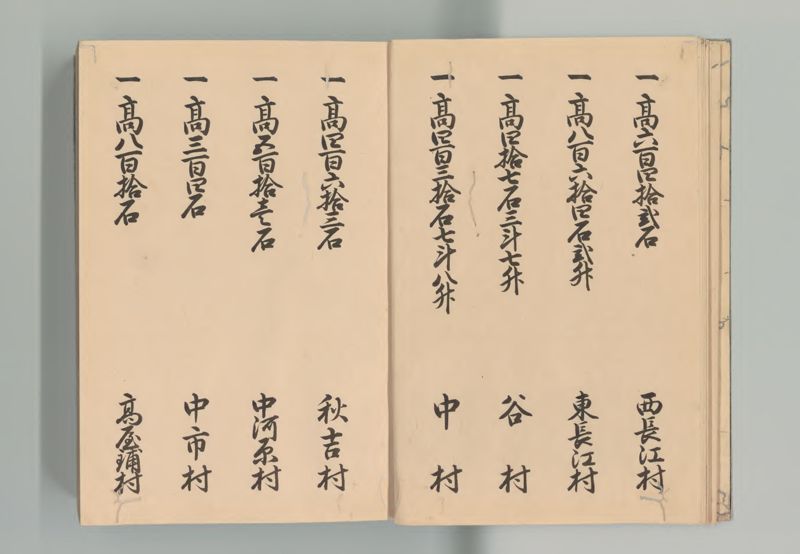 一高六百四拾弐石 西長江村
一高八百六拾四石弐升 東長江村
一高四拾七石三斗七升 谷村
一高四百三拾石七斗八升 中村
一高四百六拾三石 秋吉村
一高五百拾壱石 中河原村
一高三百四石 中市村
一高八百拾石 高屋鋪村